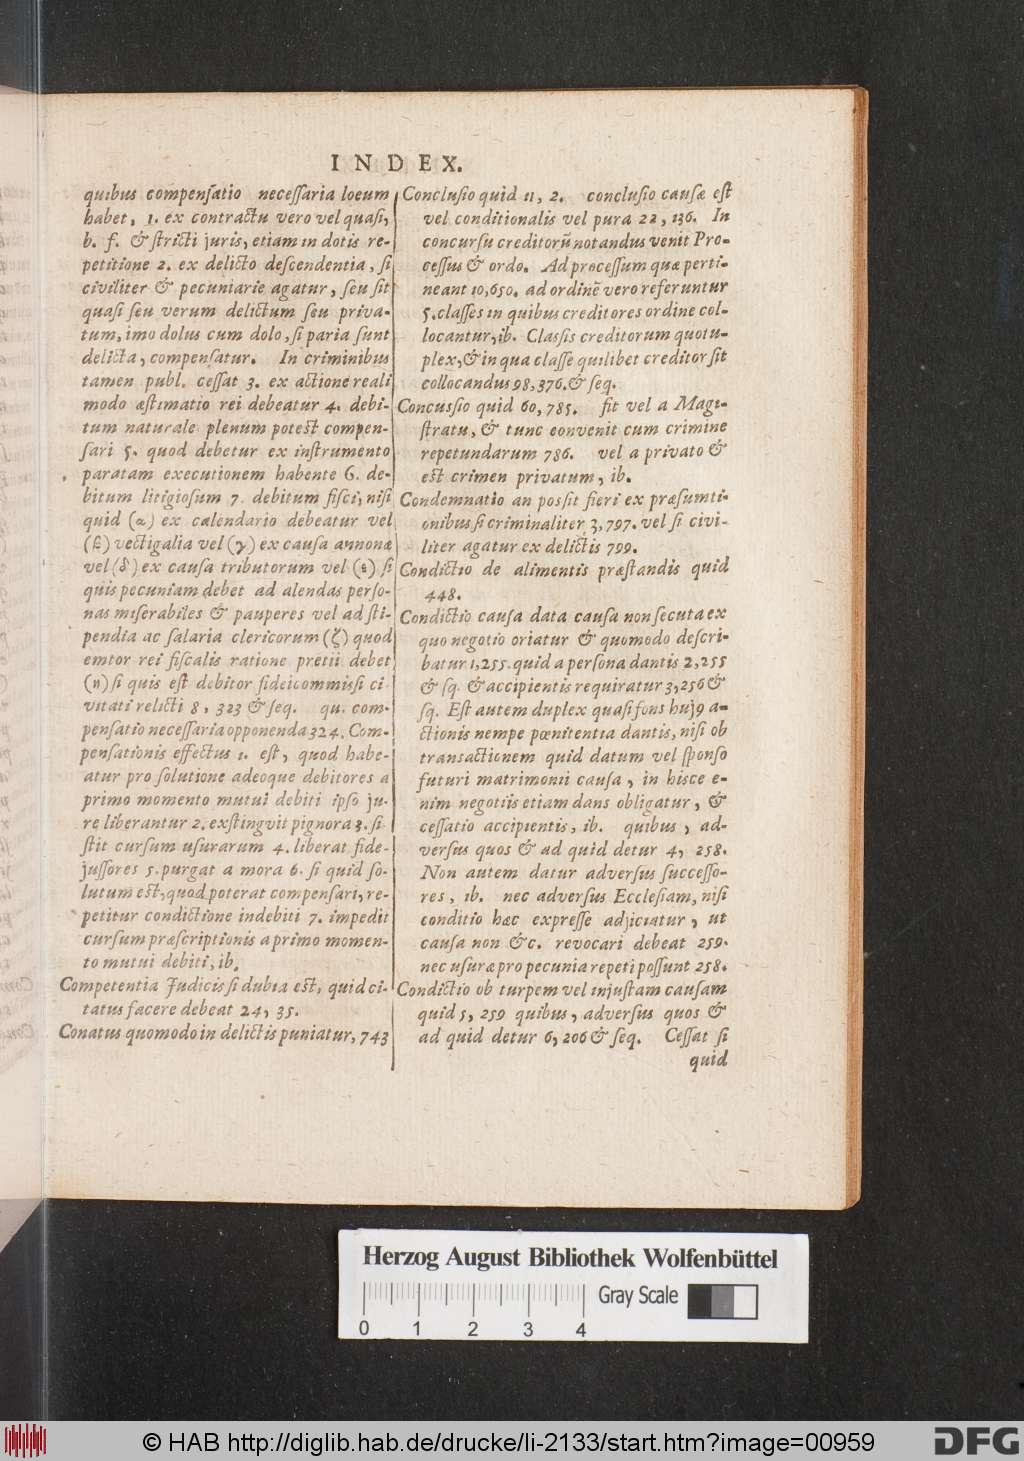 INDEX.
quibus compenſatio neceſſaria locum
habet, 1. ex contractu vero vel quaſi,
b. f. & ſtricti juris, etiam in dotis re-
petitione 2. ex delicto deſcendentia, ſi
civiliter & pecuniarie agatur, ſeu ſit
quaſi ſeu verum delictum ſeu priva-
tum, imo dolus cum dolo, ſi paria ſunt
delicta, compenſatur. In criminibus
tamen publ. ceſſat 3. ex actione reali
modo æſtimatio rei debeatur 4. debi-
tum naturale plenum poteſt compen-
ſari 5. quod debetur ex inſtrumento
paratam executionem habente 6. de-
bitum litigioſum 7. debitum fiſci, niſi
quid (α) ex calendario debeatur vel
(β) vectigalia vel (γ) ex cauſa annonæ
vel (δ) ex cauſa tributorum vel (ε) ſi
quis pecuniam debet ad alendas perſo-
nas miſerabiles & pauperes vel ad ſti-
pendia ac ſalaria clericorum (ζ) quod
emtor rei fiſcalis ratione pretii debet
(η) ſi quis eſt debitor fideicommiſſi ci
vitati relicti 8, 323 & ſeq. qu. com-
penſatio neceſſaria opponenda 324. Com-
penſationis effectus 1. eſt, quod habe-
atur pro ſolutione adeoque debitores a
primo momento mutui debiti ipſo ju-
re liberantur 2. exſtingvit pignora 3. ſi-
ſtit curſum uſurarum 4. liberat fide-
juſſores 5. purgat a mora 6. ſi quid ſo-
lutum eſt, quod poterat compenſari, re-
petitur condictione indebiti 7. impedit
curſum præſcriptionis a primo momen-
to mutui debiti, ib.
Competentia Judicis ſi dubia eſt, quid ci-
tatus facere debeat 24, 35.
Conatus quomodo in delictis puniatur, 743
Concluſio quid 11, 2. concluſio cauſæ eſt
vel conditionalis vel pura 22, 136. In
concurſu creditorũ notandus venit Pro-
ceſſus & ordo. Ad proceſſum quæ perti-
neant 10, 650. ad ordinẽ vero referuntur
5. claſſes in quibus creditores ordine col-
locantur, ib. Claſſis creditorum quotu-
plex, & in qua claſſe quilibet creditor ſit
collocandus 98, 376. & ſeq.
Concuſſio quid 60, 785. fit vel a Magi-
ſtratu, & tunc convenit cum crimine
repetundarum 786. vel a privato &
eſt crimen privatum, ib.
Condemnatio an poſſit fieri ex præſumti-
onibus ſi criminaliter 3, 797. vel ſi civi-
liter agatur ex delictis 799.
Condictio de alimentis præſtandis quid
448.
Condictio cauſa data cauſa non ſecuta ex
quo negotio oriatur & quomodo deſcri-
batur 1, 255. quid a perſona dantis 2, 255
& ſq. & accipientis requiratur 3, 256 &
ſq. Eſt autem duplex quaſi fons huj9 a-
ctionis nempe pœnitentia dantis, niſi ob
transactionem quid datum vel ſponſo
futuri matrimonii cauſa, in hisce e-
nim negotiis etiam dans obligatur, &
ceſſatio accipientis, ib. quibus, ad-
verſus quos & ad quid detur 4, 258.
Non autem datur adverſus ſucceſſo-
res, ib. nec adverſus Eccleſiam, niſi
conditio hæc expreſſe adjiciatur, ut
cauſa non &c. revocari debeat 259.
nec uſuræ pro pecunia repeti poſſunt 258.
Condictio ob turpem vel injuſtam cauſam
quid 5, 259 quibus, adverſus quos &
ad quid detur 6, 206 & ſeq. Ceſſat ſi
quid
Herzog August Bibliothek Wolfenbüttel
Gray Scale
0 1 2 3 4
© HAB http://diglib.hab.de/drucke/li-2133/start.htm?image=00959
DFG